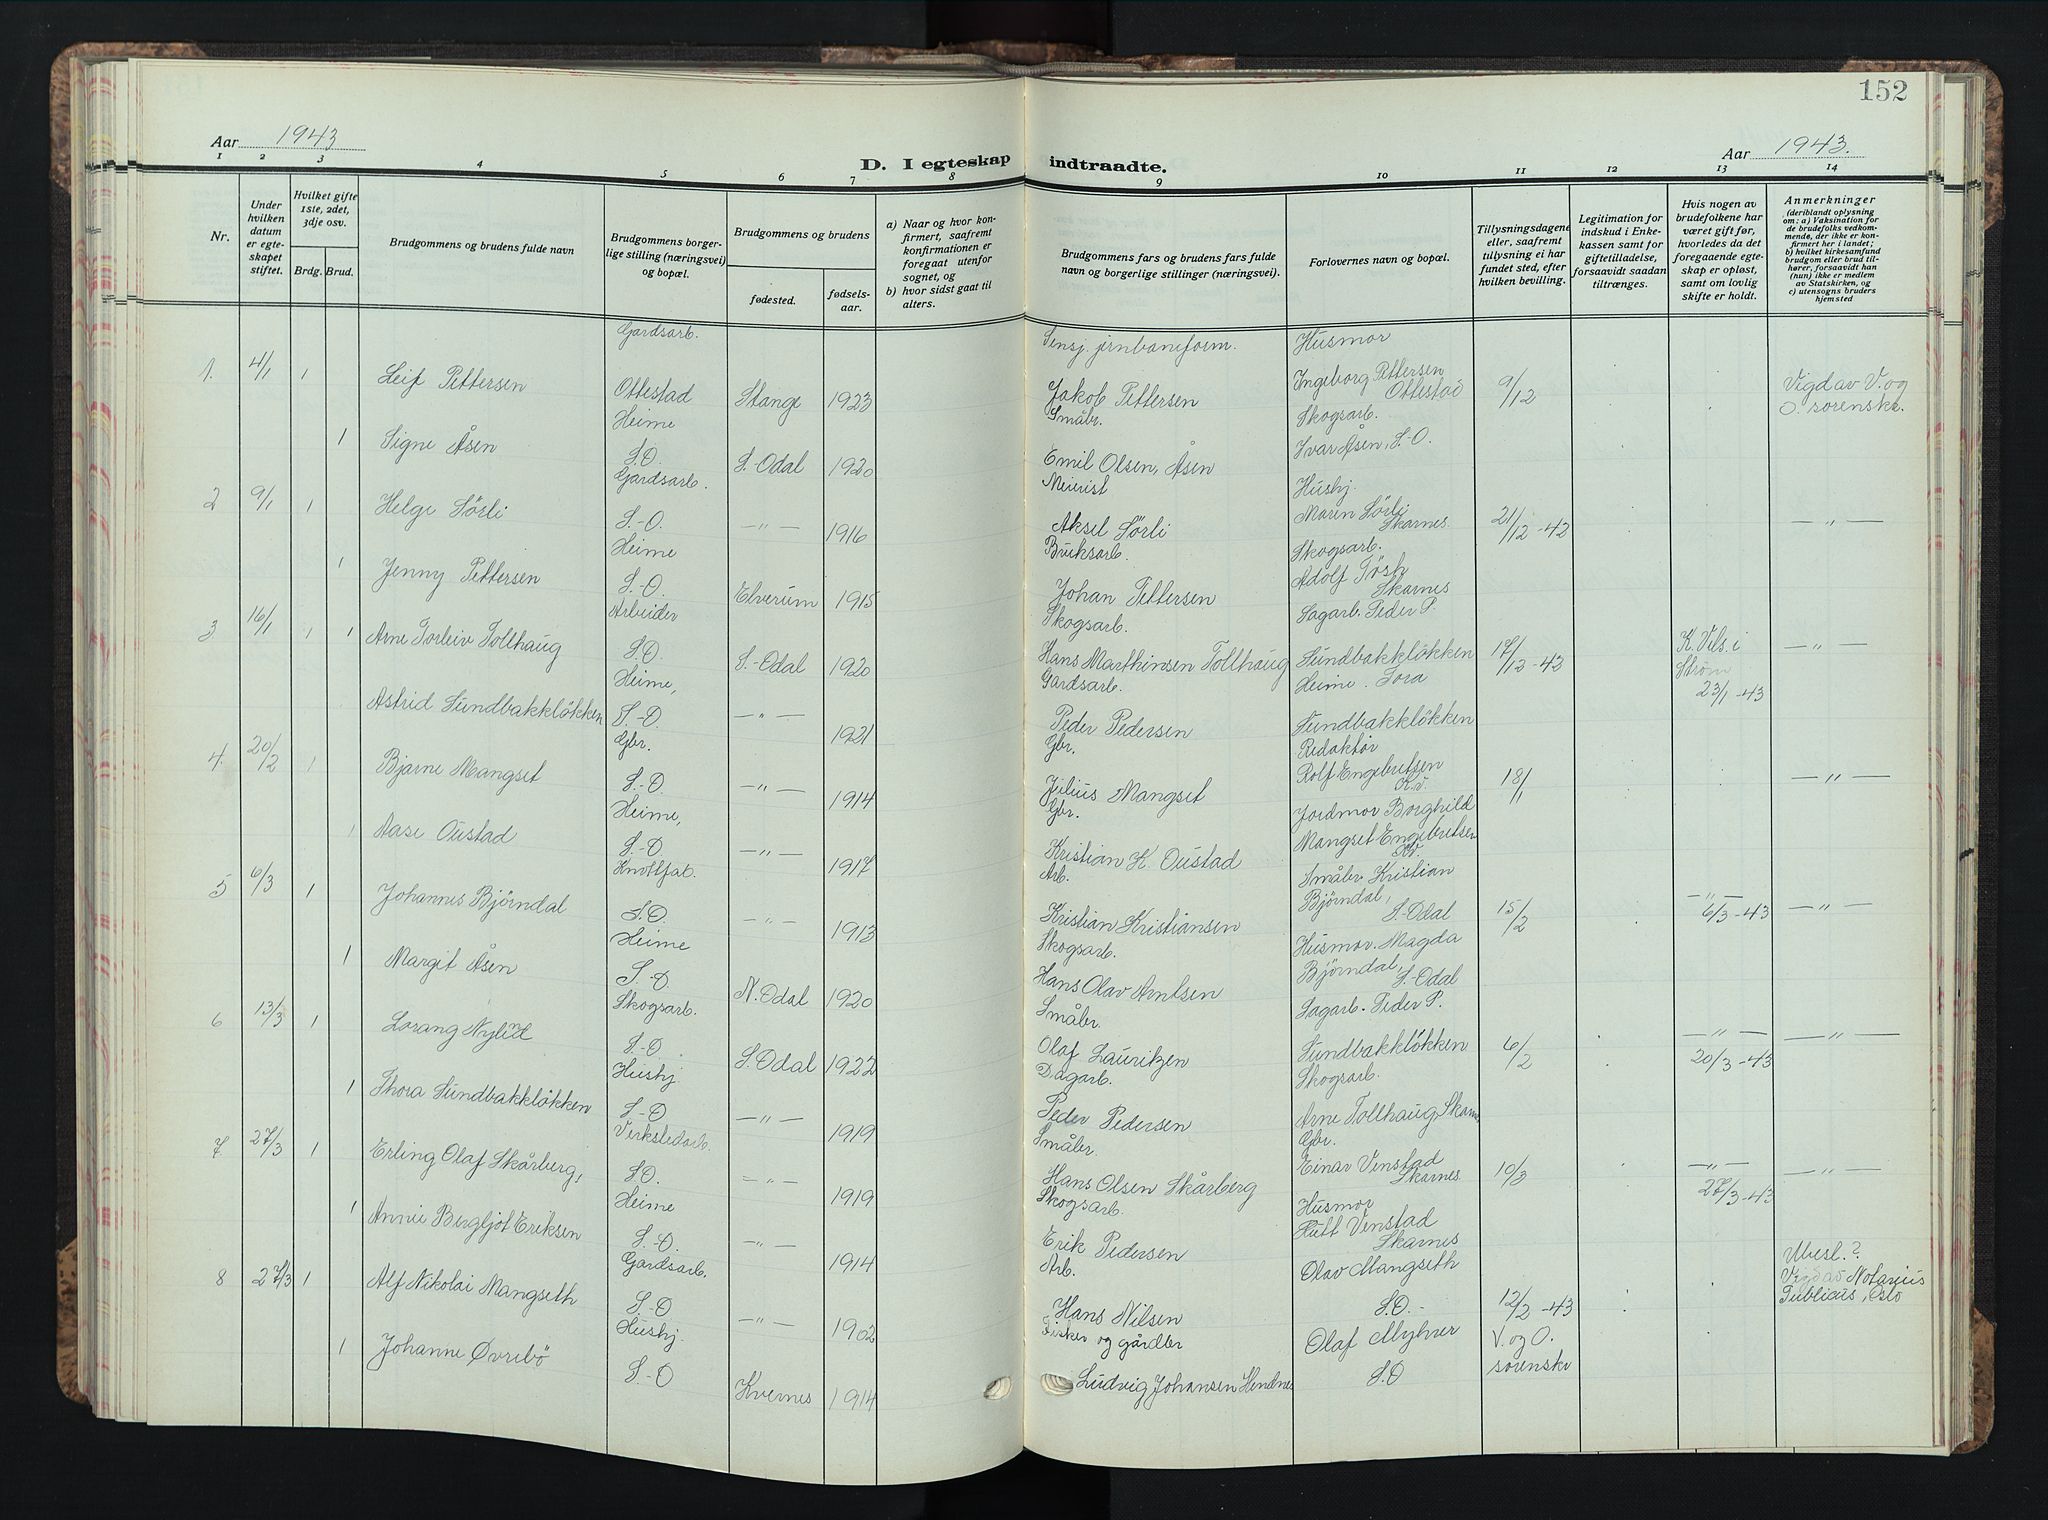 152
Aar 1943
Aar 1943.
D. I egteskap indtraadte.
1 2 3 4 5 6 7 8 9 10 11 12 13 14
Nr.
Under hvilken datum er egteskapet stiftet.
Hvilket gifte 1ste, 2det, 3dje osv.
Brdg. Brud.
Brudgommens og brudens fulde navn
Brudgommens borgerlige stilling (næringsvei) og bopæl.
Brudgommens og brudens
fødested.
fødselsaar.
a) Naar og hvor konfirmert, saafremt konfirmationen er foregaat utenfor sognet, og
b) hvor sidst gaat til alters.
Brudgommens fars og brudens fars fulde navn og borgerlige stillinger (næringsvei).
Forlovernes navn og bopæl.
Tillysningsdagene eller, saafremt tillysning ei har fundet sted, efter hvilken bevilling.
Legitimation for indskud i Enkekassen samt for giftetilladelse, forsaavidt saadan tiltrænges.
Hvis nogen av brudefolkene har været gift før, hvorledes da det foregaaende egteskap er opløst, samt om lovlig skifte er holdt.
Anmerkninger
(deriblandt oplysning om: a) Vaksination for de brudefolks vedkommende, der ikke er konfirmert her i landet; b) hvilket kirkesamfund brudgom eller brud tilhører, forsaavidt han (hun) ikke er medlem av Statskirken, og c) utensogns bruders hjemsted
1. 4/1 1 Leif Pettersen Gardsarb. Ottestad Stange 1923 Pensj. jernbaneform. Jakob Pettersen Husmor Ingeborg Pettersen Ottestad 9/12 Vigd av V. og O. sorenskr.
1 Signe Åsen Heime S.O. S.-Odal 1920 Småbr. Emil Olsen, Åsen Skogsarb. Ivar Åsen, S.-O.
2 9/1 1 Helge Sörli Gardsarb. S.-O. —"— 1916 Meierist Aksel Sörli Hushj. Maren Sörli Skarnes. 21/12-42 —"—
1 Jenny Pettersen Heime S.-O. Elverum 1915 Bruksarb. Johan Pettersen Skogsarb. Adolf Skarnes
3 16/1 1 1 Arne Torleiv Tollhaug Arbeider S.O. S.-Odal 1920 Skogsarb. Hans Marthinsen Tollhaug Sagarb. Peder P. Sundbakklökken 17/12-43 K. Vils. i Ström 23/1-43 —"—
Astrid Sundbakklökken Heime, S.-O —"— 1921 Gardsarb. Peder Pedersen Heime. Tora Sundbakklökken
4. 20/2 1 Bjarne Mangset Gbr. S.-O. —"— 1914 Gbr. Julius Mangset Redaktør Rolf Engebretsen K.v. 18/1 —"—
1 Aase Oustad Heime, S.-O —"— 1917 Gbr. Kristian K. Oustad Jordmor Borghild Mangset Engebretsen Kv.
5 6/3 1 Johannes Bjørndal Knottfab. S.O. —"— 1913 Arb. Kristian Kristiansen Småbr Kristian Bjørndal, S.-Odal 15/2 —"— 6/3-43 —"—
1 Margit Åsen Heime S.-O N. Odal 1920 Skogsarb. Hans Olav Arntsen Husmor. Magda Bjørndal, S.-Odal
6 13/3 1 Lorang Nylend Skogsarb. S.-O. S.Odal 1922 Småbr. Olaf Lauritzen Sagarb. Peder P. Sundbakklökken 6/2 —"— 20/3-43 —"—
1 Thora Sundbakklökken Hushj S.-O —"— 1919 Dagarb. Peder Pedersen Skogsarb. Arne Tollhaug, Skarnes
7 27/3 1 Erling Olaf Skårberg, Verkstedarb. S.O. —"— 1919 Småbr. Hans Olsen Skårberg Gbr. Einar Venstad Skarnes 10/3 —"— 27/3-43 —"—
1 Annie Bergljot Eriksen Heime S.-O. —"— 1914 Skogsarb. Erik Pedersen Husmor Venstad Skarnes
8 27/3 1 Alf Nikolai Mangseth Gardsarb. S.-O —"— 1902 Arb. Hans Nilsen Olav Mangseth S.O.- 12/2-43 V. og O. sorenskr Ubesl.? Vigd av Notarius Publicus, Oslo
1 Johanne Øvrebö Hushj. S.-O Kvernes 1914 Fisker og gårdbr Ludvig Johansen Hendnes Olaf Myhrer S.O